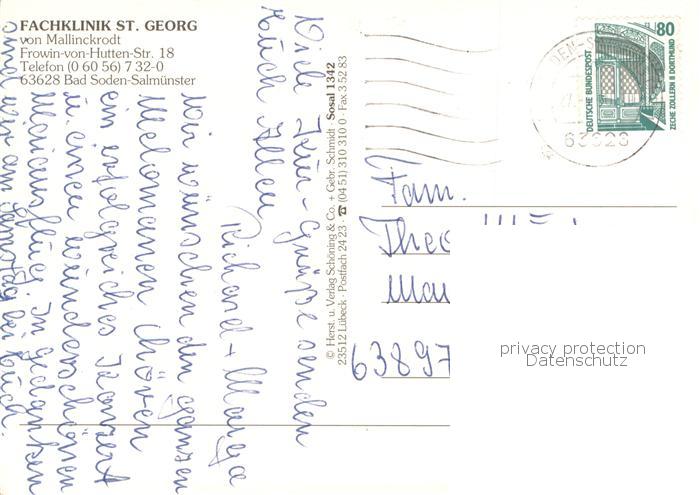 FACHKLINIK ST. GEORG
von Mallinckrodt
Frowin-von-Hutten-Str. 18
Telefon (0 60 56) 7 32-0
63628 Bad Soden-Salmünster
Wir wünschen den ganzen
Melomanen Chören
ein erfolgreiches Konzert
u. einen wunderschönen
Maiausflug. In Gedanken
sind wir am Samstag bei Euch.
Viele Kur-Grüße senden
Euch Allen
Richard + Marga
© Herst. u. Verlag Schöning & Co. + Gebr. Schmidt · Sosal 1342
23512 Lübeck · Postfach 24 23 · ☎ (04 51) 310 310 0 · Fax 3 52 83
80
DEUTSCHE BUNDESPOST
ZECHE ZOLLERN II DORTMUND
63628
Fam.
Theo
63897
privacy protection
Datenschutz